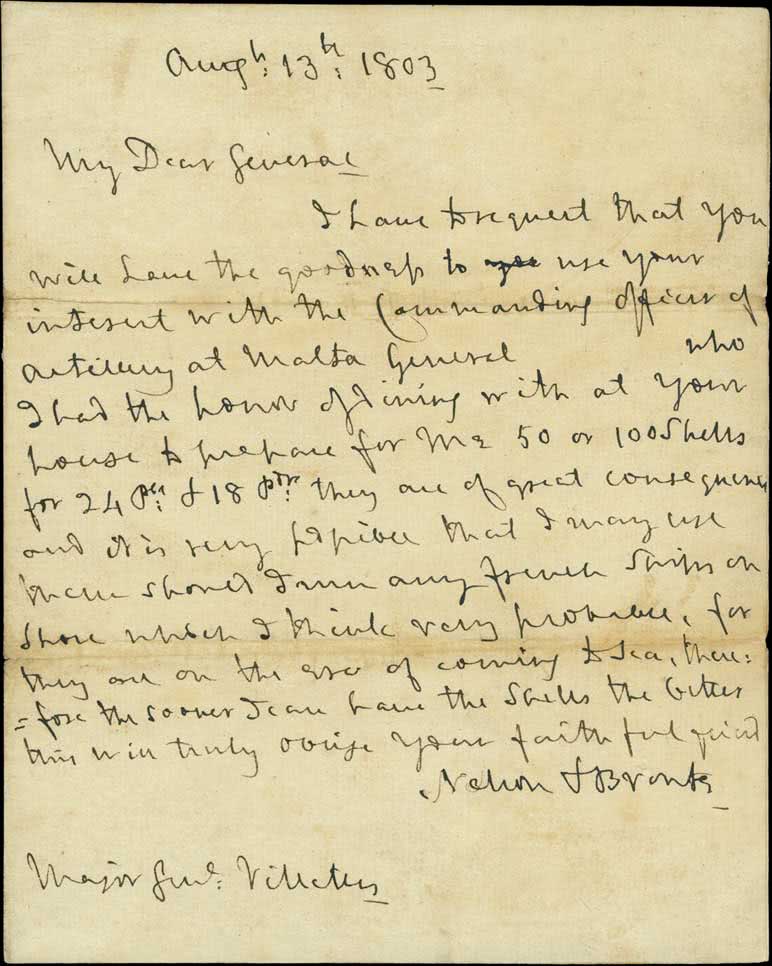 Augt: 13th: 1803
My Dear General
I have to request that you
will have the goodness to you use your
interest with the Commanding officer of
Artillery at Malta General who
I had the honor of dining with at your
house to prepare for me 50 or 100 Shells
for 24 per: & 18 pdr: they are of great consequence
and it is very possible that I may use
them should I run any french Ships on
shore which I think very probable, for
they are on the eve of coming to sea, there:
=fore the sooner I can have the Shells the better
this will truly oblige your faithful friend
Nelson & Bronte
Major Genl: Villettes